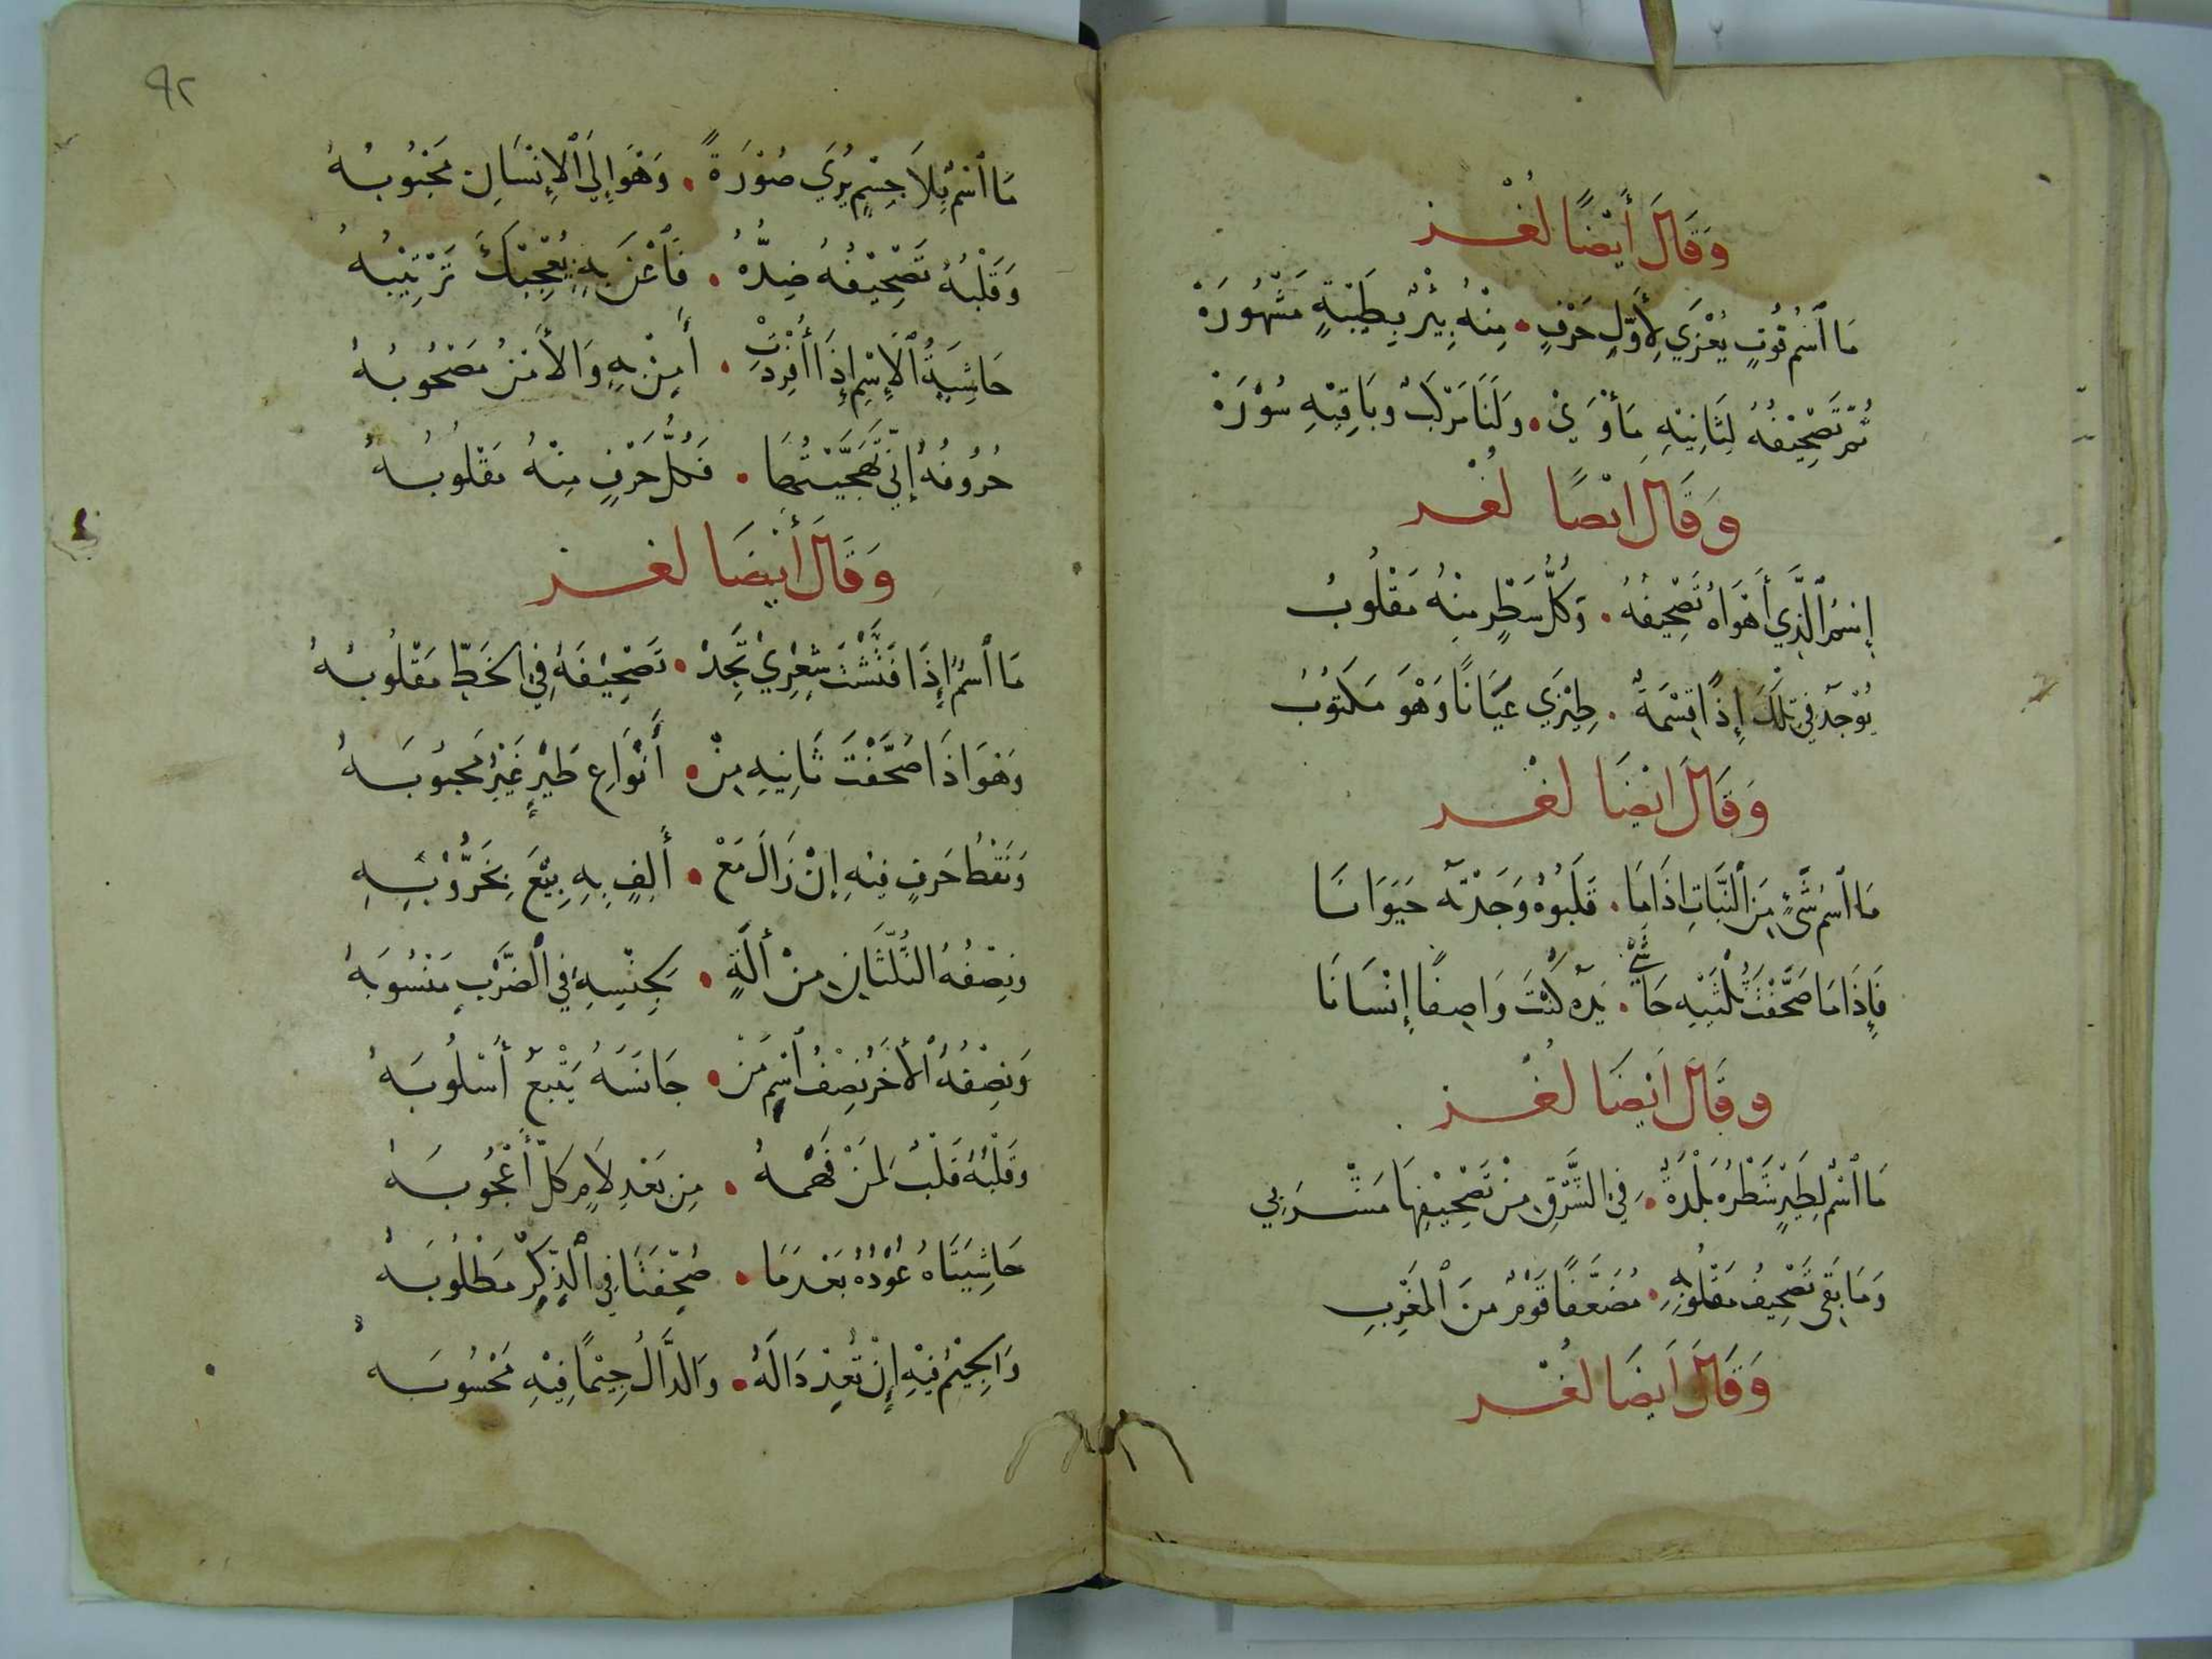 وَقَالَ أَيْضًا لُغْز
مَا ٱسْمُ قُوتٍ يُعْزَي لِأَوَّلِ حَرْفٍ • مِنْهُ بِئْرٌ بِطَيْبَةٍ مَشْهُورَهْ
ثُمَّ تَصْحِيْفُهُ لِثَانِيْهِ مَأْوَيً • وَلَنَا مَرْكَبٌ وبَاقِيْهِ سُوْرَهْ
وَقَالَ ايْضًا لُغْز
إِسْمُ ٱلَّذِي أَهْوَاهُ تَصْحِيفُهُ • وَكُلُّ سَطْرٍ مِنْهُ مَقْلُوبُ
يُوْجَدُ فِي تِلْكَ إِذًا قِسْمَةٌ • ضِيْزَي عَيَانًا وَهْوَ مَكْتُوبُ
وَقَالَ ايْضَا لغْز
مَا ٱسْمُ شَيْءٍ مِنَ ٱلنَّبَاتِ اذَا مَا • قَلَبُوهُ وَجَدْتَهُ حَيَوَانَا
فَإِذَا مَا صَحَّفْتَ ثُلْثَيْهِ حَاشَي • بَدْءِهِ كُنْتَ وَاصِفًا إِنْسَانَا
وقَالَ ايْضَا لُغْز
مَا ٱسْمٌ لِطَيْرٍ شَطْرُهُ بَلْدَةٌ • فِي الشَّرْقِ مِنْ تَصْحِيْفِهَا مَشْرَبِي
وَمَا بَقَى تَصْحِيفُ مَقْلُوبِهِ • مُضَعَّفًا قَوْمٌ مِنَ ٱلمَغْرِبِ
وَقَالَ ايضَا لُغْز
٩٢
مَا ٱسْمٌ بِلَا جِسْمٍ يُرَي صُوْرَةً • وَهْوَ إِلَي ٱلْإِنْسَانِ مَحْبُوبُهُ
وَقَلْبُهُ تَصْحِيْفُهُ ضِدُّهُ • فَاْعْنَ بِهِ يُعْجِبْكَ تَرْتِيْبُهُ
حَاشِيَةُ ٱلْإِسْمِ إِذَا أُفْرِدَتْ • أَمِنْ بِهِ وَالأَمْنُ مَصْحُوبُهُ
حُرُوفُهُ إِنِّي تَهَجَّيْتُهَا • فَكُلُّ حَرْفٍ مِنْهُ مَقْلُوبُهُ
وَقَالَ أَيْضَا لغز
مَا ٱسْمٌ إِذَا فَتَّشْتَ شِعْرِيْ تَجِدْ • تَصْحِيْفَهُ فِي الخَطِّ مَقْلُوبُهُ
وَهْوَ اذَا صَحَّفْتَ ثَانِيهِ مِنْ • أَنْوَاعِ طَيْرٍ غَيْرِ مَحبُوبَهْ
وَنَقْطُ حَرفٍ فِيْهِ إِنْ زَالَ مَعْ • أَلِفٍ بِهِ بِيْعَ بِخَرُّوْبَهِ
وَنِصْفُهُ الثُّلْثَانِ مِنْ أَلَةٍ • بِجِنْسِهِ فِي ٱلضَّرْبِ مَنْسُوبَهْ
وَنِصْفُهُ ٱلأَخَرُ نِصْفُ ٱسْمِ مَنْ • جَانَسَهُ يَتْبَعُ أُسْلُوبَهُ
وَقَلْبُهُ قَلْبٌ لِمَنْ فَهْمُهُ • مِن بَعْدِ لَامٍ كلّ أُعْجُوبَهْ
حَاشِيَتَاهُ عُوْدُهُ بَعْدَ مَا • صُحِّفَتَا فِي ٱلذِّكْرِ مَطْلُوبَهْ
وَالجِيْمُ فِيْهِ إِنْ تُعِدْ دَالَهُ • وَالدَّالُ جِيْمًا فِيْهِ مَحْسُوبَهْ